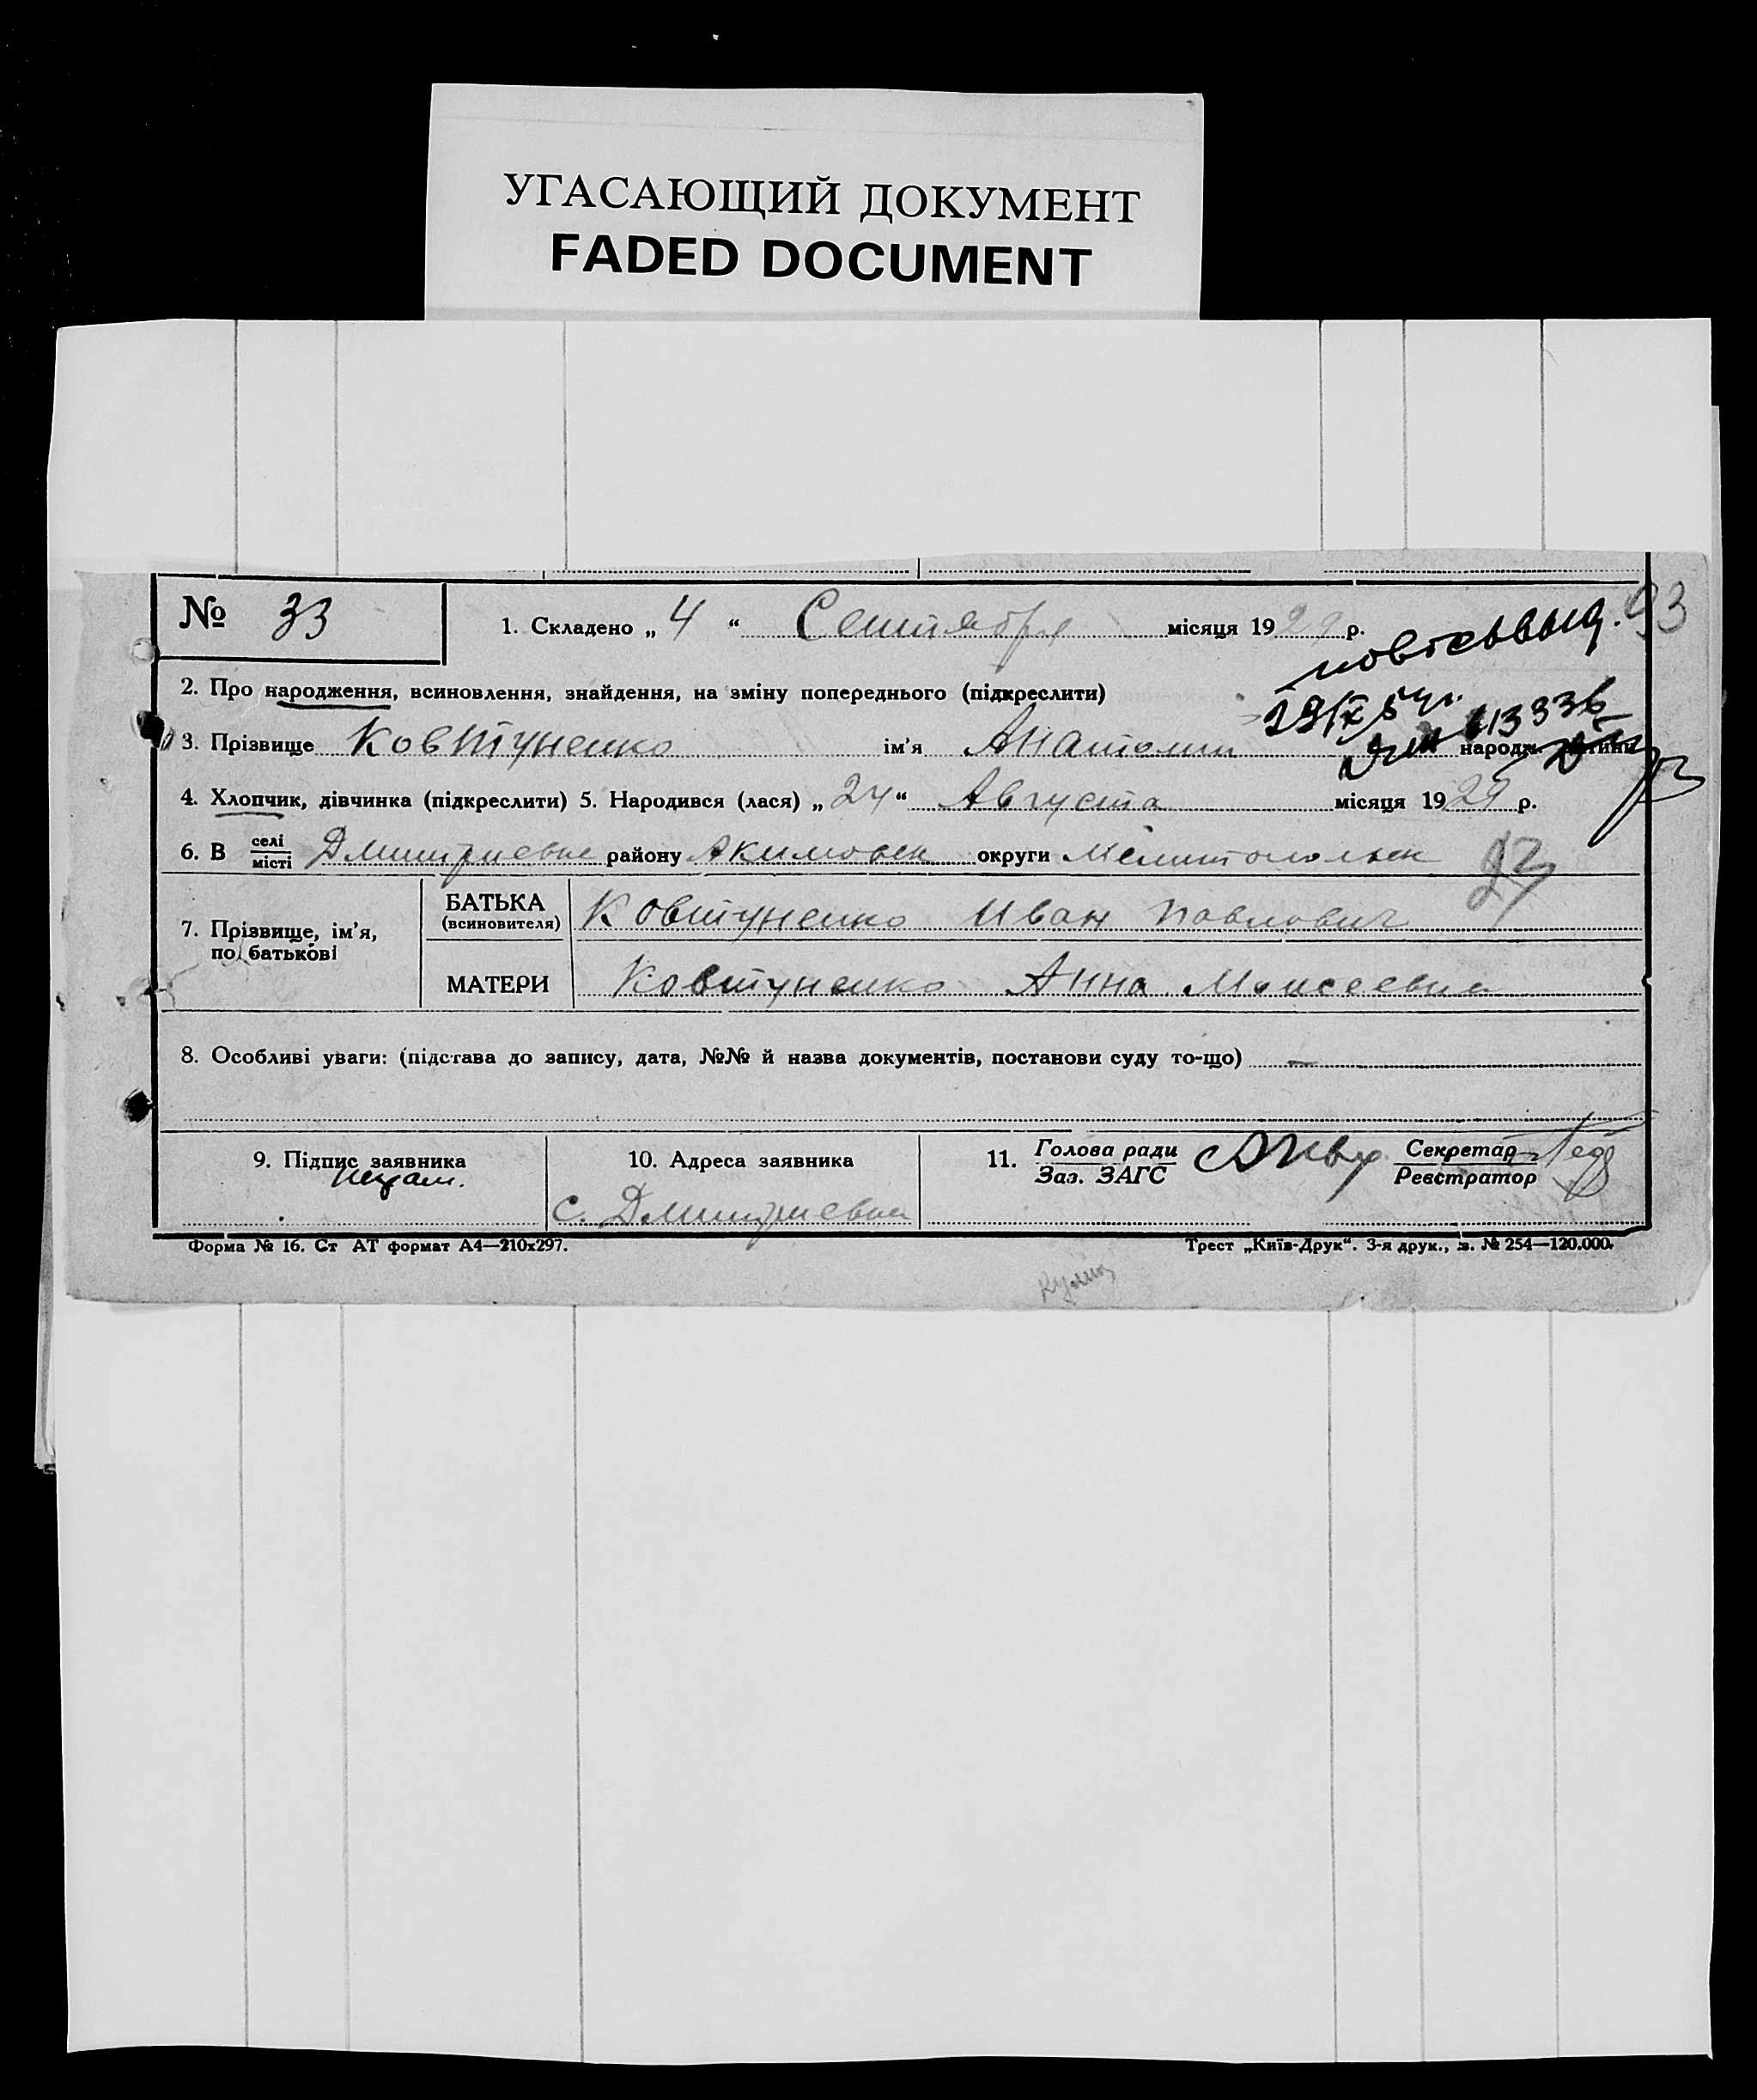 УГАСАЮЩИЙ ДОКУМЕНТ
FADED DOCUMENT
№ 33
1. Складено „ 4 “ Сентября місяця 1929 р.
93
2. Про народження, всиновлення, знайдення, на зміну попереднього (підкреслити)
3. Прізвище Ковтуненко ім’я Анатолии народж. дитини
4. Хлопчик, дівчинка (підкреслити) 5. Народився (лася) „ 24 “ Августа місяця 1929 р.
6. В селі/місті Дмитриевке району Акимовск округи Мелитопольск
7. Прізвище, ім’я, по батькові
БАТЬКА (всиновителя) Ковтуненко Иван Павлович
МАТЕРИ Ковтуненко Анна Моисеевна
8. Особливі уваги: (підстава до запису, дата, №№ й назва документів, постанови суду то-що) —
9. Підпис заявника
10. Адреса заявника
с. Дмитриевка
11. Голова ради Заз. ЗАГС
Секретар Реєстратор
Форма № 16. Ст АТ формат А4—210х297.
Трест „Київ-Друк“. 3-я друк., з. № 254—120.000.